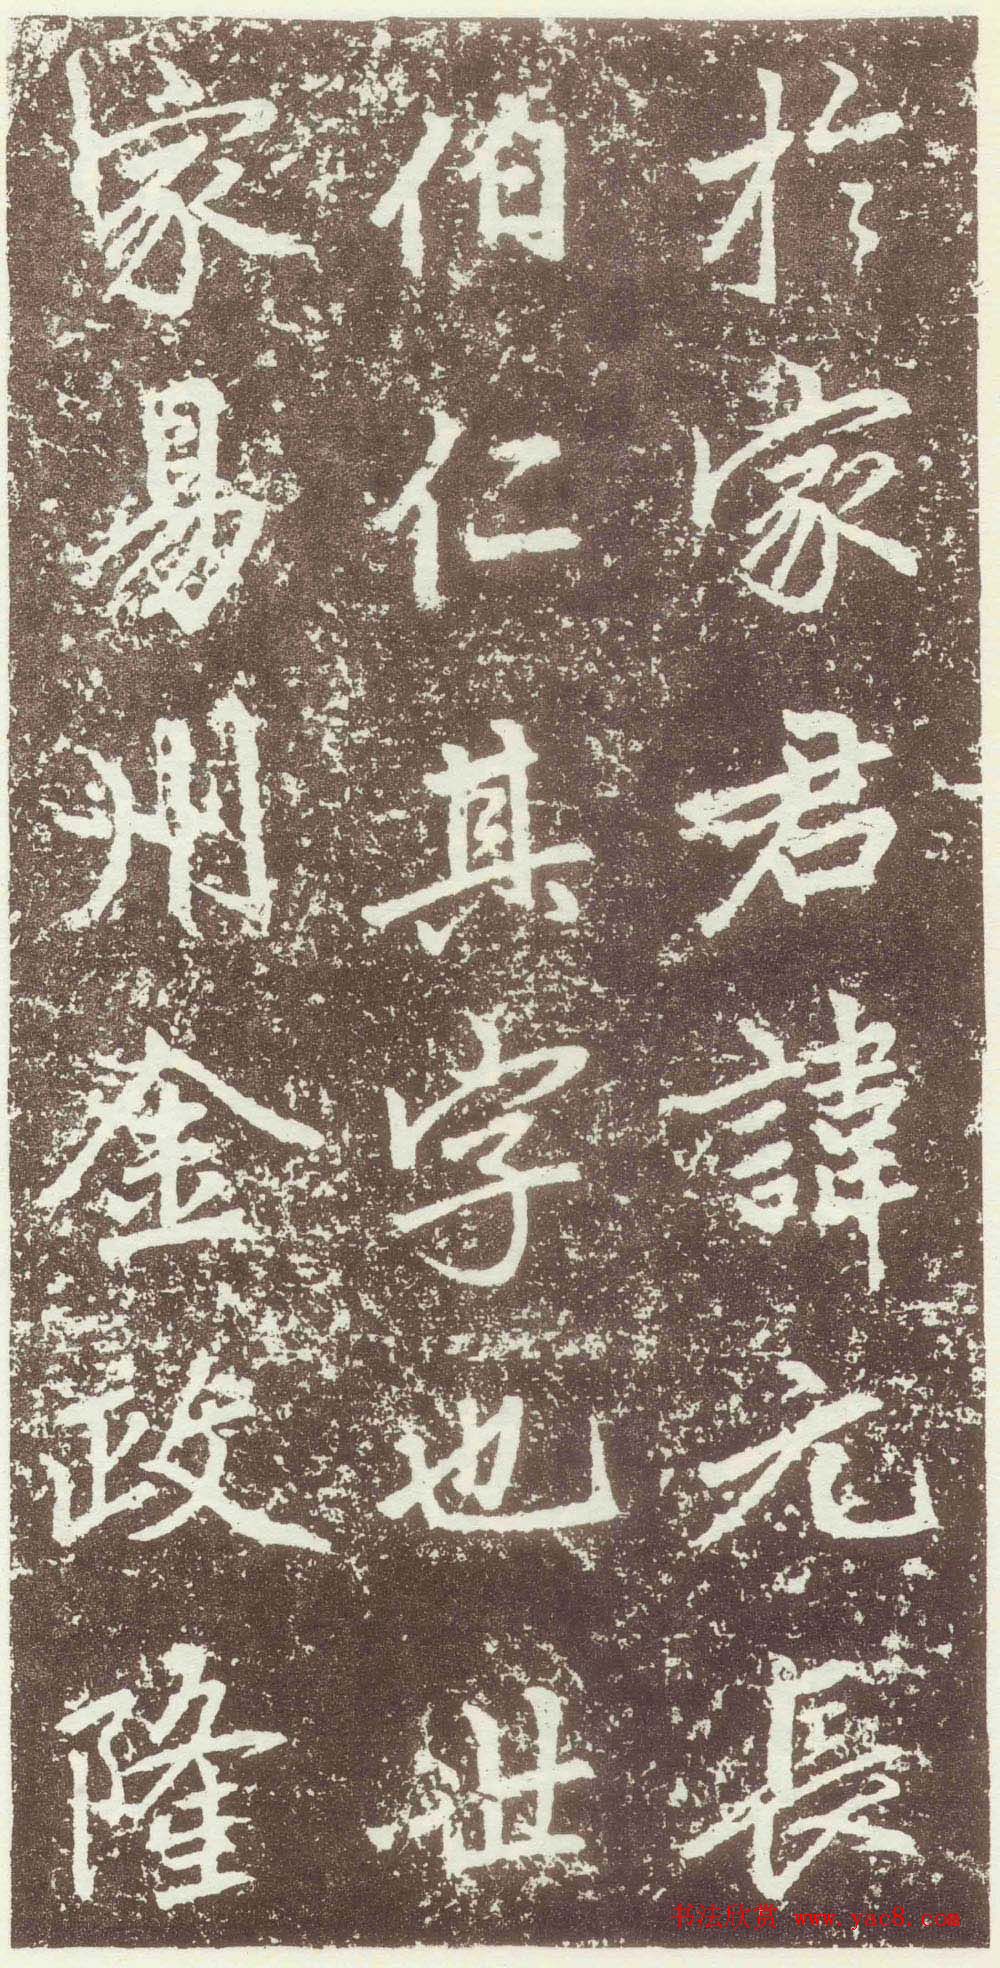 於家君諱元長
伯仁其字也世
家易州金政隆
书法欣赏 www.yac8.com